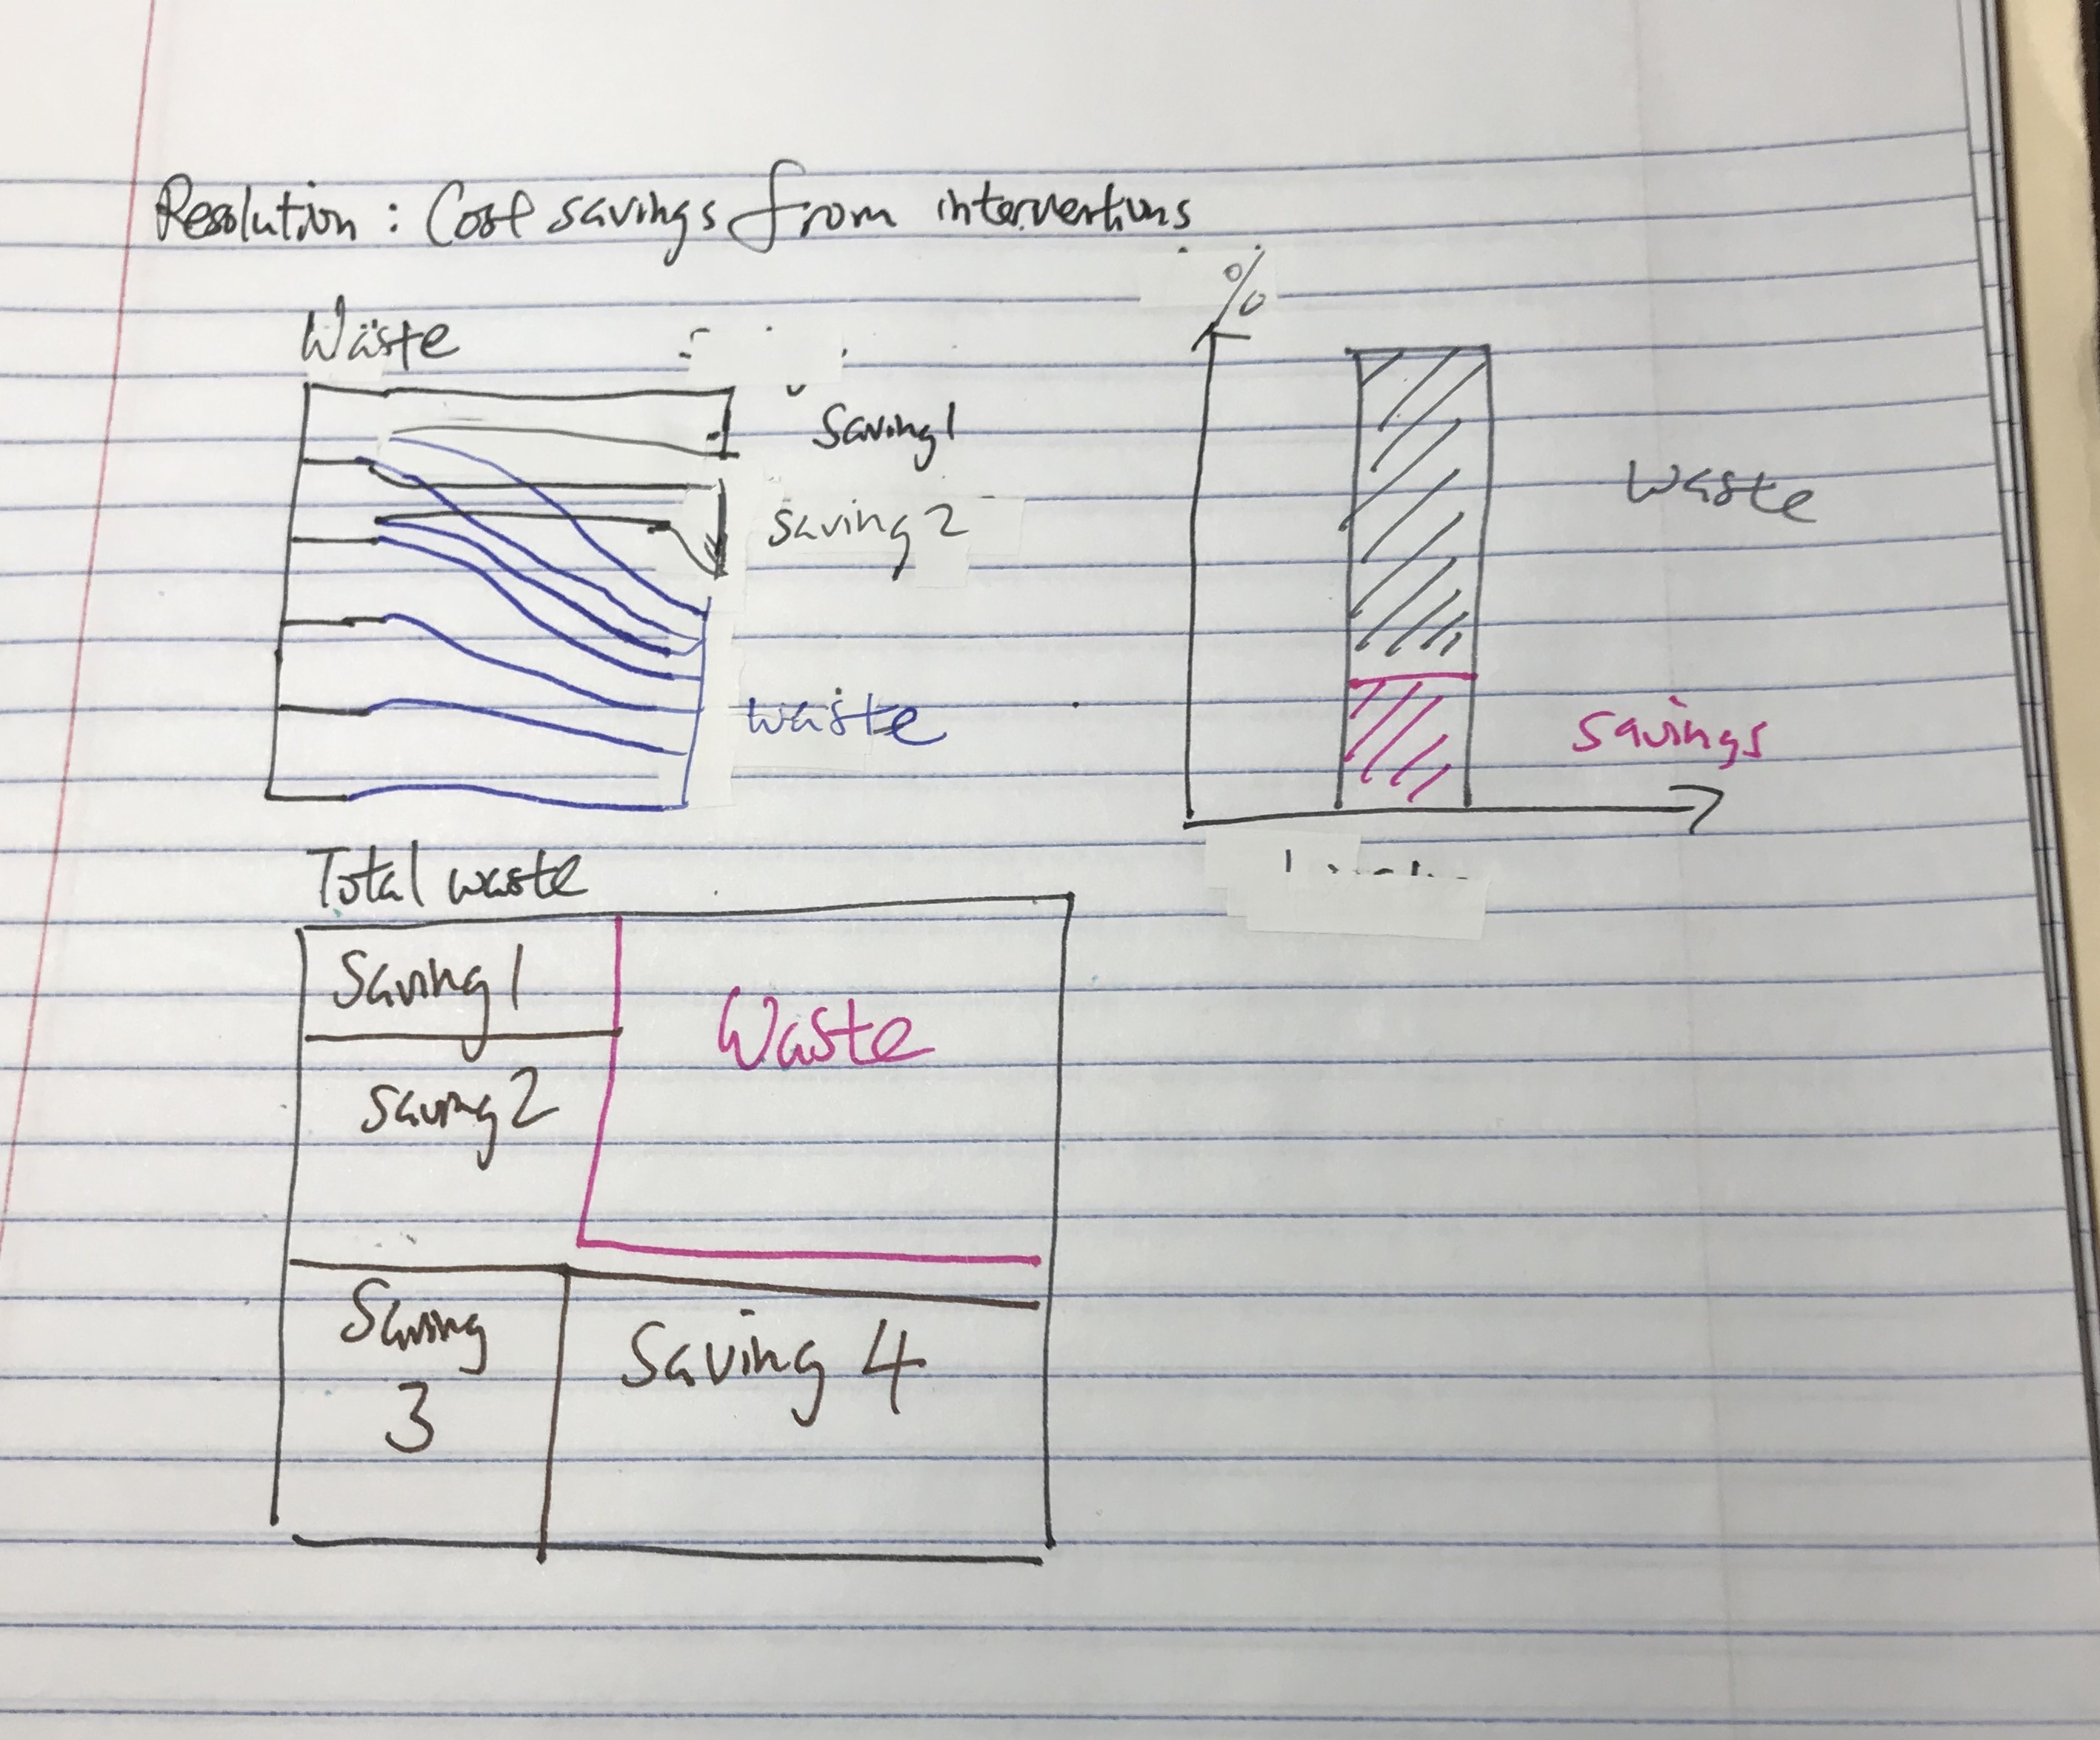 Resolution: Cost savings from interventions
%
Waste
Saving 1
Saving 2
Waste
Waste
Savings
Total waste
Saving 1
Waste
Saving 2
Saving
3
Saving 4